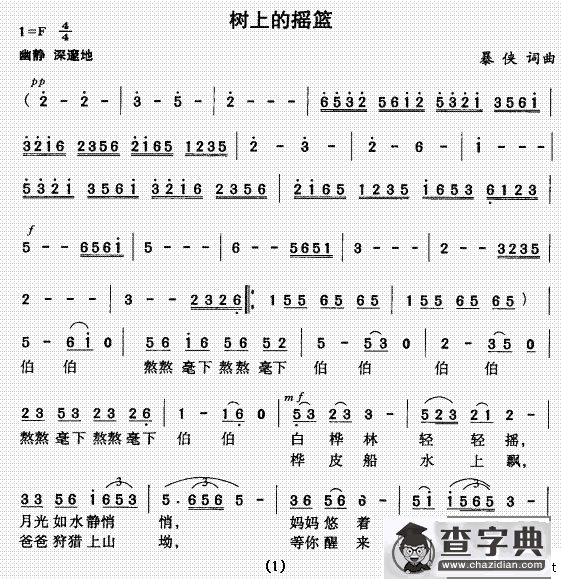 树上的摇篮
1=F 4/4
幽静 深邃地
暴 侠 词曲
pp
( 2 - 2 - | 3 - 5 - | 2 - - - | 6532 5612 5321 3561 |
3216 2356 2165 1235 | 2 - 3 - | 2 - 6 - | 1 - - -
5321 3561 3216 2356 | 2165 1235 1653 6123 |
f
5 - - 6561 | 5 - - - | 6 - - 5651 | 3 - - - | 2 - - 3235 |
2 - - - | 3 - - 2326 |: 1 55 65 65 | 1 55 65 65 )
5 - 61 0 | 56 16 56 52 | 5 - 53 0 | 2 - 35 0 |
伯 伯 熬熬 毫下 熬熬 毫下 伯 伯 伯 伯
mf
23 53 23 26 | 1 - 16 0 | 53 23 3 - | 523 21 2 - |
熬熬 毫下 熬熬 毫下 伯 伯 白 桦 林 轻 轻 摇,
桦 皮 船 水 上 飘,
33 56 1653 | 5 . 656 5 - | 35 56 5 - | 51 1565 3
月光 如水 静悄 悄, 妈妈 悠 着
爸爸 狩猎 上山 坳, 等你 醒 来
(1)
查字典
www.chazidian.com
t